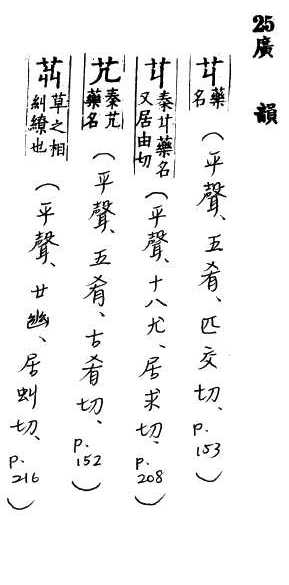 25 廣韻
藥名（平聲、五肴、匹交切、p.153）
秦 藥名又居由切（平聲、十八尤、居求切、p.208）
芁 秦芁藥名（平聲、五肴、古肴切、p.152）
草之相糾繚也（平聲、廿幽、居虯切、p.216）